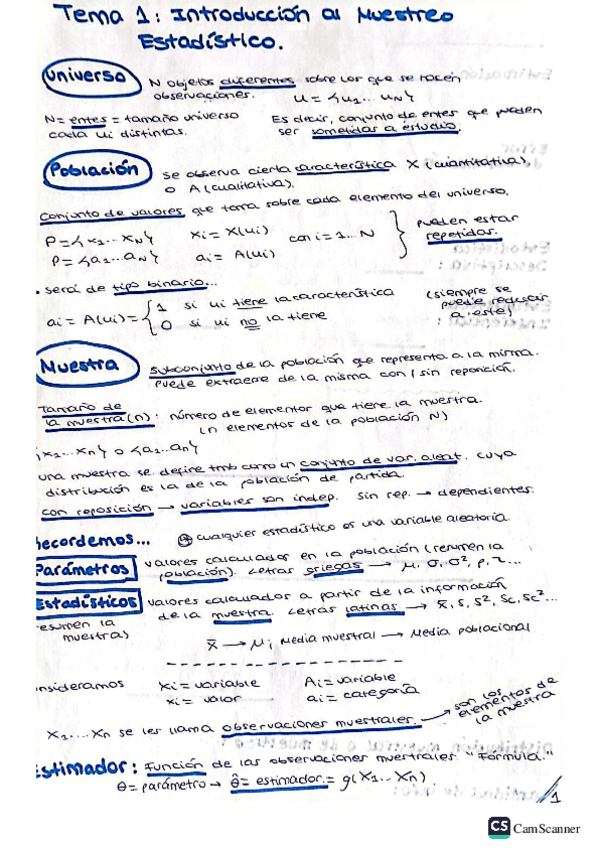 Tema 1: Introducción al Muestreo
Estadístico.
Universo N objetos diferentes sobre los que se hacen
observaciones. U = {u1... uN}
N = entes = tamaño universo Es decir, conjunto de entes que pueden
cada ui distintas. ser sometidas a estudio.
Población se observa cierta característica X (cuantitativa),
o A (cualitativa).
Conjunto de valores que toma sobre cada elemento del universo.
P = {x1... xN} xi = X(ui) con i = 1... N } pueden estar
P = {a1... aN} ai = A(ui) repetidas.
• será de tipo binario... (siempre se
ai = A(ui) = { 1 si ui tiene la característica puede reducir
0 si ui no la tiene a este)
Muestra subconjunto de la población que representa a la misma.
Puede extraerse de la misma con / sin reposición.
Tamaño de
la muestra (n): número de elementos que tiene la muestra.
(n elementos de la población N)
{x1... xn} o {a1... an}
una muestra se define tmb como un conjunto de var. aleat. cuya
distribución es la de la población de partida.
con reposición → variables son indep. sin rep. → dependientes.
ecordemos... cualquier estadístico es una variable aleatoria.
Parámetros valores calculados en la población (resumen la
población). Letras griegas → μ, σ, σ², ρ,
Estadísticos valores calculados a partir de la información
esumen la de la muestra. Letras latinas → x̄, s, s², sc, sc²...
muestra)
x̄ → μ; Media muestral → Media poblacional
nsideramos Xi = variable Ai = variable
xi = valor ai = categoría
X1... Xn se les llama observaciones muestrales. → son los
elementos de
la muestra
Estimador: Función de las observaciones muestrales "Fórmula."
θ = parámetro → θ̂ = estimador = g(X1... Xn)
1
CS CamScanner